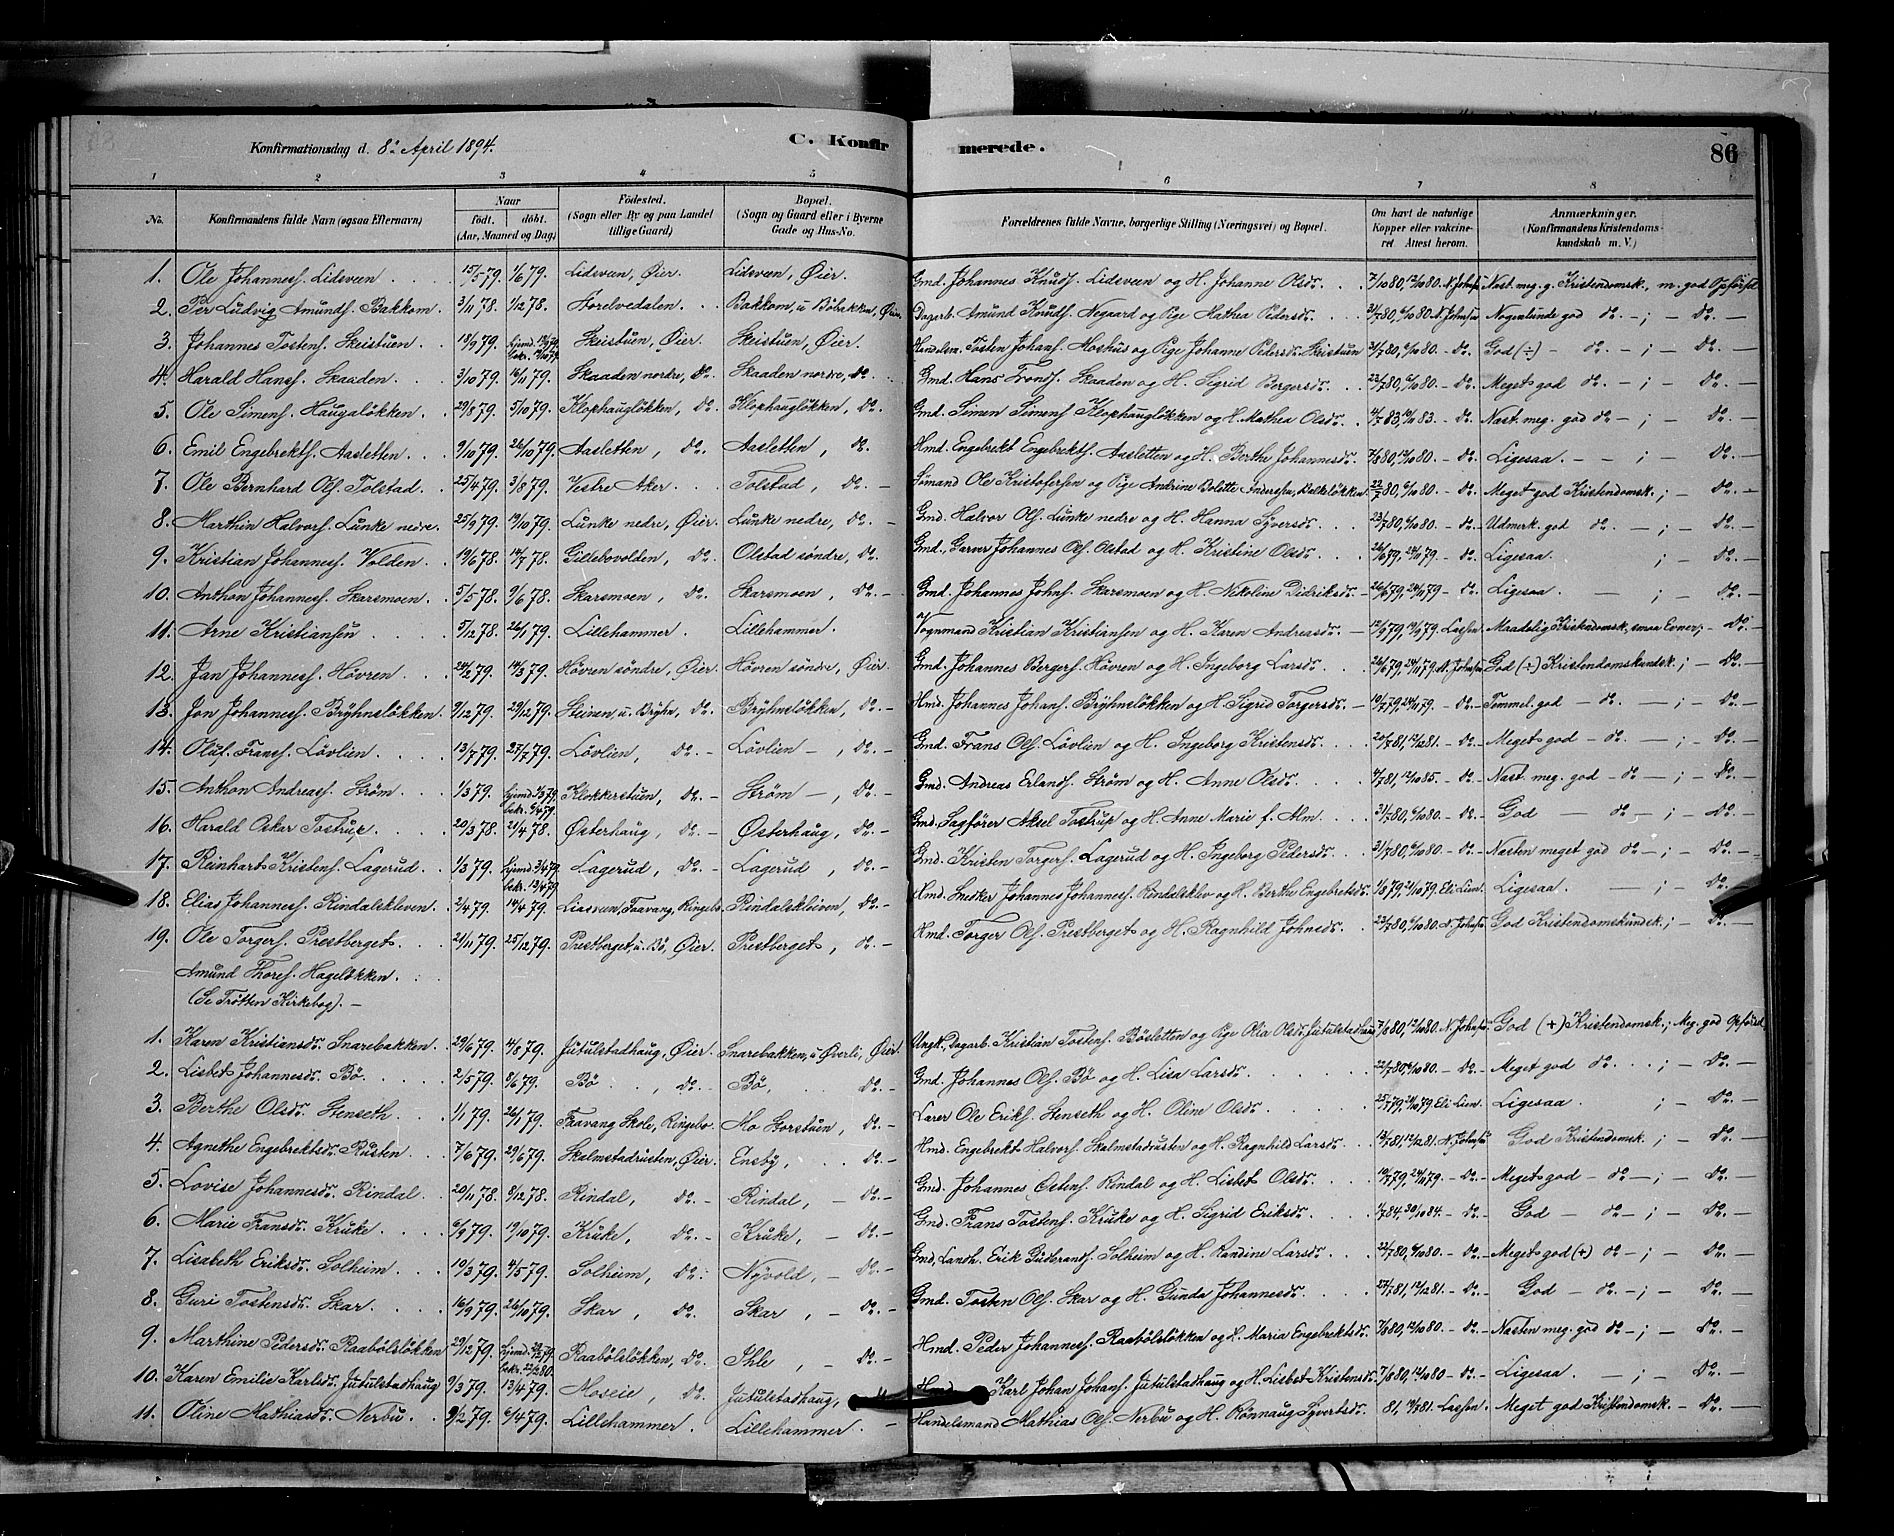 Konfirmationsdag d. 8de April 1894.
C. Konfirmerede.
86
1 2 3 4 5 6 7 8
No. Konfirmandens fulde Navn (ogsaa Efternavn) Naar födt. döbt. (Aar, Maaned og Dag) Födested. (Sogn eller By og paa Landet tillige Gaard) Bopæl. (Sogn og Gaard eller i Byerne Gade og Hus-No. Forældrenes fulde Navne, borgerlige Stilling (Næringsvei) og Bopæl. Om havt de naturlige Kopper eller vakcineret. Attest herom. Anmærkninger. (Konfirmandens Kristendomskundskab m. V.)
1. Ole Johannesf. Lidsveen 15/5 79. 1/6 79. Lidsveen, Øier. Lidsveen, Øier. Gmd. Johannes Knudf. Lidsveen og H. Johanne Olsdr. 7/10 80, 12/10 80. N. Johnsen Næst. meg. g. Kristendomsk., m. god Opförsel
2. Per Ludvig Amundf. Bakkom. 3/11 78. 1/12 78. Forelvedalen Bakkom, u. Böbakken, Øier Dagarb. Amund Knudf. Negaard og Pige Mathea Pedersdr. 31/7 80, 6/10 80. N. Johnsen Nogenlunde god do. — ; — Do. —
3. Johannes Tostenf. Skistuen. Skistuen, Øier. Skistuen, Øier. Handelsm. Tosten Johanf. Moshus og Pige Johanne Pedersdr. Skistuen 31/7 80, 6/10 80. - Do. God (÷) - do. — ; — Do. —
4. Harald Hansf. Skaaden. 3/10 79. 16/11 79. Skaaden nordre, Do. Skaaden nordre, Do. Gmd. Hans Trondf. Skaaden og H. Sigrid Borgersdr. 22/7 80, 6/10 80. - Do. Meget god do. — ; — Do. —
5. Ole Simenf. Haugalökken. 29/8 79. 5/10 79. Klophauglökken, Do. Klophauglökken, Do. Gmd. Simen Simenf. Klophauglökken og H. Mathea Olsdr. Næst. meg. god do — ; — Do. —
6. Emil Engebrektf. Aasletten. 9/10 79. 26/10 79. Aasletten, do. Aasletten, do. Hmd. Engebrekt Engebrektf. Aasletten og H. Berthe Johannesdr. 7/8 80, 12/10 80. - Do. Ligesaa. — ; — Do. —
7. Ole Bernhard Olf. Tolstad. 25/4 79. 3/8 79. Vestre Aker. Tolstad, Do. — Sömand Ole Kristofersen og Pige Andrine Bolette Andersen, Bakkelökken 22/7 80, 6/10 80. - Do. Meget god Kristendomsk.; — Do. —
8. Marthin Halvorf. Lunke nedre. 25/9 79. 19/10 79. Lunke nedre, Øier. Lunke nedre, do. — Gmd. Halvor Olf. Lunke nedre og H. Hanna Syversdr. 23/7 80, 6/10 80. - do. Udmerk. god do. — ; — Do. —
9. Kristian Johannesf. Volden. 19/6 78. 14/7 78. Gillebovolden, do. Olstad söndre, do. — Gmd., Garver Johannes Olf. Olstad og H. Kristine Olsdr. 26/6 79, 24/11 79. - do. Ligesaa ; — Do. —
10. Anthon Johannesf. Skarsmoen. 5/5 78. 9/6 78. Skarsmoen, do. Skarsmoen, do. — Gmd. Johannes Johnf. Skarsmoen og H. Nikoline Didriksdr. — 26/6 79, 24/11 79 - do. Ligesaa. — ; — Do. —
11. Arne Kristiansen 5/12 78. 26/1 79. Lillehammer. Lillehammer. Vognmand Kristian Kristiansen og H. Karen Andreasdr. — 12/9 79, 19/9 79. Lassen. Maadelig Kristendomsk., smaa Evner; — Do. —
12. Jan Johannesf. Hövren 24/2 79. 14/3 79. Hövren söndre, Øier. Hövren söndre, Øier. Gmd. Johannes Bergerf. Hövren og H. Ingeborg Larsdr. 26/6 79, 24/11 79. N. Johnsen God (÷) Kristendomskundsk.; — Do. —
13. Jon Johannesf. Bryhnslökken. 9/12 79. 29/12 79. Steinen, u. Bryhn, do. Bryhnslökken, do. — Hmd. Johannes Johanf. Bryhnslökken og H. Sigrid Torgersdr. 10/7 79, 24/11 79. - do. Temmel. god — do. — ; — Do. —
14. Oluf Fransf. Lövlien 13/7 79. 27/7 79. Lövlien, do. — Lövlien —, do. — Gmd. Frans Olf. Lövlien og H. Ingeborg Kristensdr. 20/7 81, 12/12 81. - do. Meget god — do. — ; — Do. —
15. Anthon Andreasf. Ström 1/3 79. Klokkerstuen, do. — Ström —, do. — Gmd. Andreas Erlandf. Ström og H. Anne Olsdr. 4/7 81, 12/10 85. - do. Næst. meg. god — do — ; — Do. —
16. Harald Oskar Tostrup. 20/3 78. 21/4 78. Østerhaug, do. — Østerhaug, do. — Gmd. Sagförer Aksel Tostrup og H. Anne Marie f. Alm. 31/7 80, 6/10 80. - do. God — do — ; — Do. —
17. Reinhart Kristenf. Lagerud. 1/3 79. Lagerud, do. — Lagerud, do. — Gmd. Kristen Torgerf. Lagerud og H. Ingeborg Pedersdr. 31/7 80, 6/10 80. - do. Næsten meget god do — ; — Do. —
18. Elias Johannesf. Rindalskleven 2/4 79. 14/4 79. Liasveen, Faavang, Ringebo. Rindalskleiven, do. — Hmd. Snedker Johannes Johannesf. Rindalsklev og H. Berthe Engebretsdr. Eli Lien. Ligesaa. — ; — Do. —
19. Ole Torgerf. Prestberget. 21/11 79. 25/12 79. Prestberget, u. Bö, Øier. Prestberget, do. — Hmd. Torger Olf. Prestberget og H. Ragnhild Johnsdr. 23/7 80, 6/10 80. N. Johnsen God Kristendomskundsk.; — Do. —
Amund Thoref. Hagelökken.
(Se Trötten Kirkebog). —
1. Karen Kristiansdr. Snarebakken. 29/6 79. 4/8 79. Jutulstadhaug, Øier. Snarebakken, u. Øverli, Øier. Ungk., Dagarb. Kristian Tostenf. Bösletten og Pige Olia Olsdr. Jutulstadhaug 7/8 80, 12/10 80. N. Johnsen God (+) Kristendomsk.; Meg. god Opförsel
2. Lisbet Johannesdr. Bö. 2/5 79. 8/6 79. Bö, do. — Bö, do. — Gmd. Johannes Olf. Bö og H. Lisa Larsdr. 22/7 80, 6/10 80. - do. — Meget god do. ; — Do. —
3. Berthe Olsdr. Stenseth. 1/1 79. 26/1 79. Faavang Skole, Ringebo. Mo Storstuen, do. — Lærer Ole Erikf. Stenseth og H. Oline Olsdr. Eli Lien Ligesaa. ; — Do. —
4. Agnethe Engebrektsdr. Rusten 7/6 79. 29/6 79. Skalmstadrusten, Øier. Ensby, do. — Hmd. Engebrekt Halvorf. Skalmstadrusten og H. Ragnhild Larsdr. N. Johnsen God Kristendomsk. ; — Do. —
5. Lovise Johannesdr. Rindal. 20/11 78. 8/12 78. Rindal, do. — Rindal, — do. — Gmd. Johannes Østenf. Rindal og H. Lisbet Olsdr. 10/7 79, 24/11 79. - Do. — Meget god — do — ; — Do. —
6. Marie Fransdr. Kruke. 6/9 79. 19/10 79. Kruke, do. — Kruke, — do. — Gmd. Frans Tostenf. Kruke og H. Sigrid Eriksdr. 1/7 84, 20/10 84. - Do. — God — do — ; — Do. —
7. Lisabeth Eriksdr. Solheim. 10/3 79. 4/5 79. Solheim, do. Nyvold, — do. — Gmd., Landh. Erik Gudbrandf. Solheim og H. Randine Larsdr. 22/7 80, 6/10 80. - Do. — Meget god (+) do — ; — Do. —
8. Guri Tostensdr. Skar. 16/9 79. 26/10 79. Skar, do. Skar, — do. — Gmd. Tosten Olf. Skar og H. Gunda Johannesdr. 27/7 81, 12/12 81. - Do. — God — do. — ; — Do. —
9. Marthine Pedersdr. Raabölslökken 29/12 79. Raabölslökken, do. Ihle, — do. — Hmd. Peder Johannesf. Raabölslökken og H. Maria Engebrektsdr. 7/8 80, 12/10 80. - do — Næsten meg. god do — ; — Do. —
10. Karen Emilie Karlsdr. Jutulstadhaug 9/3 79. 13/4 79. Moseie, do. Jutulstadhaug, Hmd. Karl Johan Johanf. Jutulstadhaug og H. Lisbet Kristensdr. 7/8 80, 12/10 80 - Do. — Ligesaa. — ; — Do. —
11. Oline Mathiasdr. Nerbu. 9/2 79. 6/4 79. Lillehammer. Lillehammer. — Handelsmand Mathias Olf. Nerbu og H. Rönnaug Syvertsdr. Lassen. Meget god Kristendomsk. — Do. —